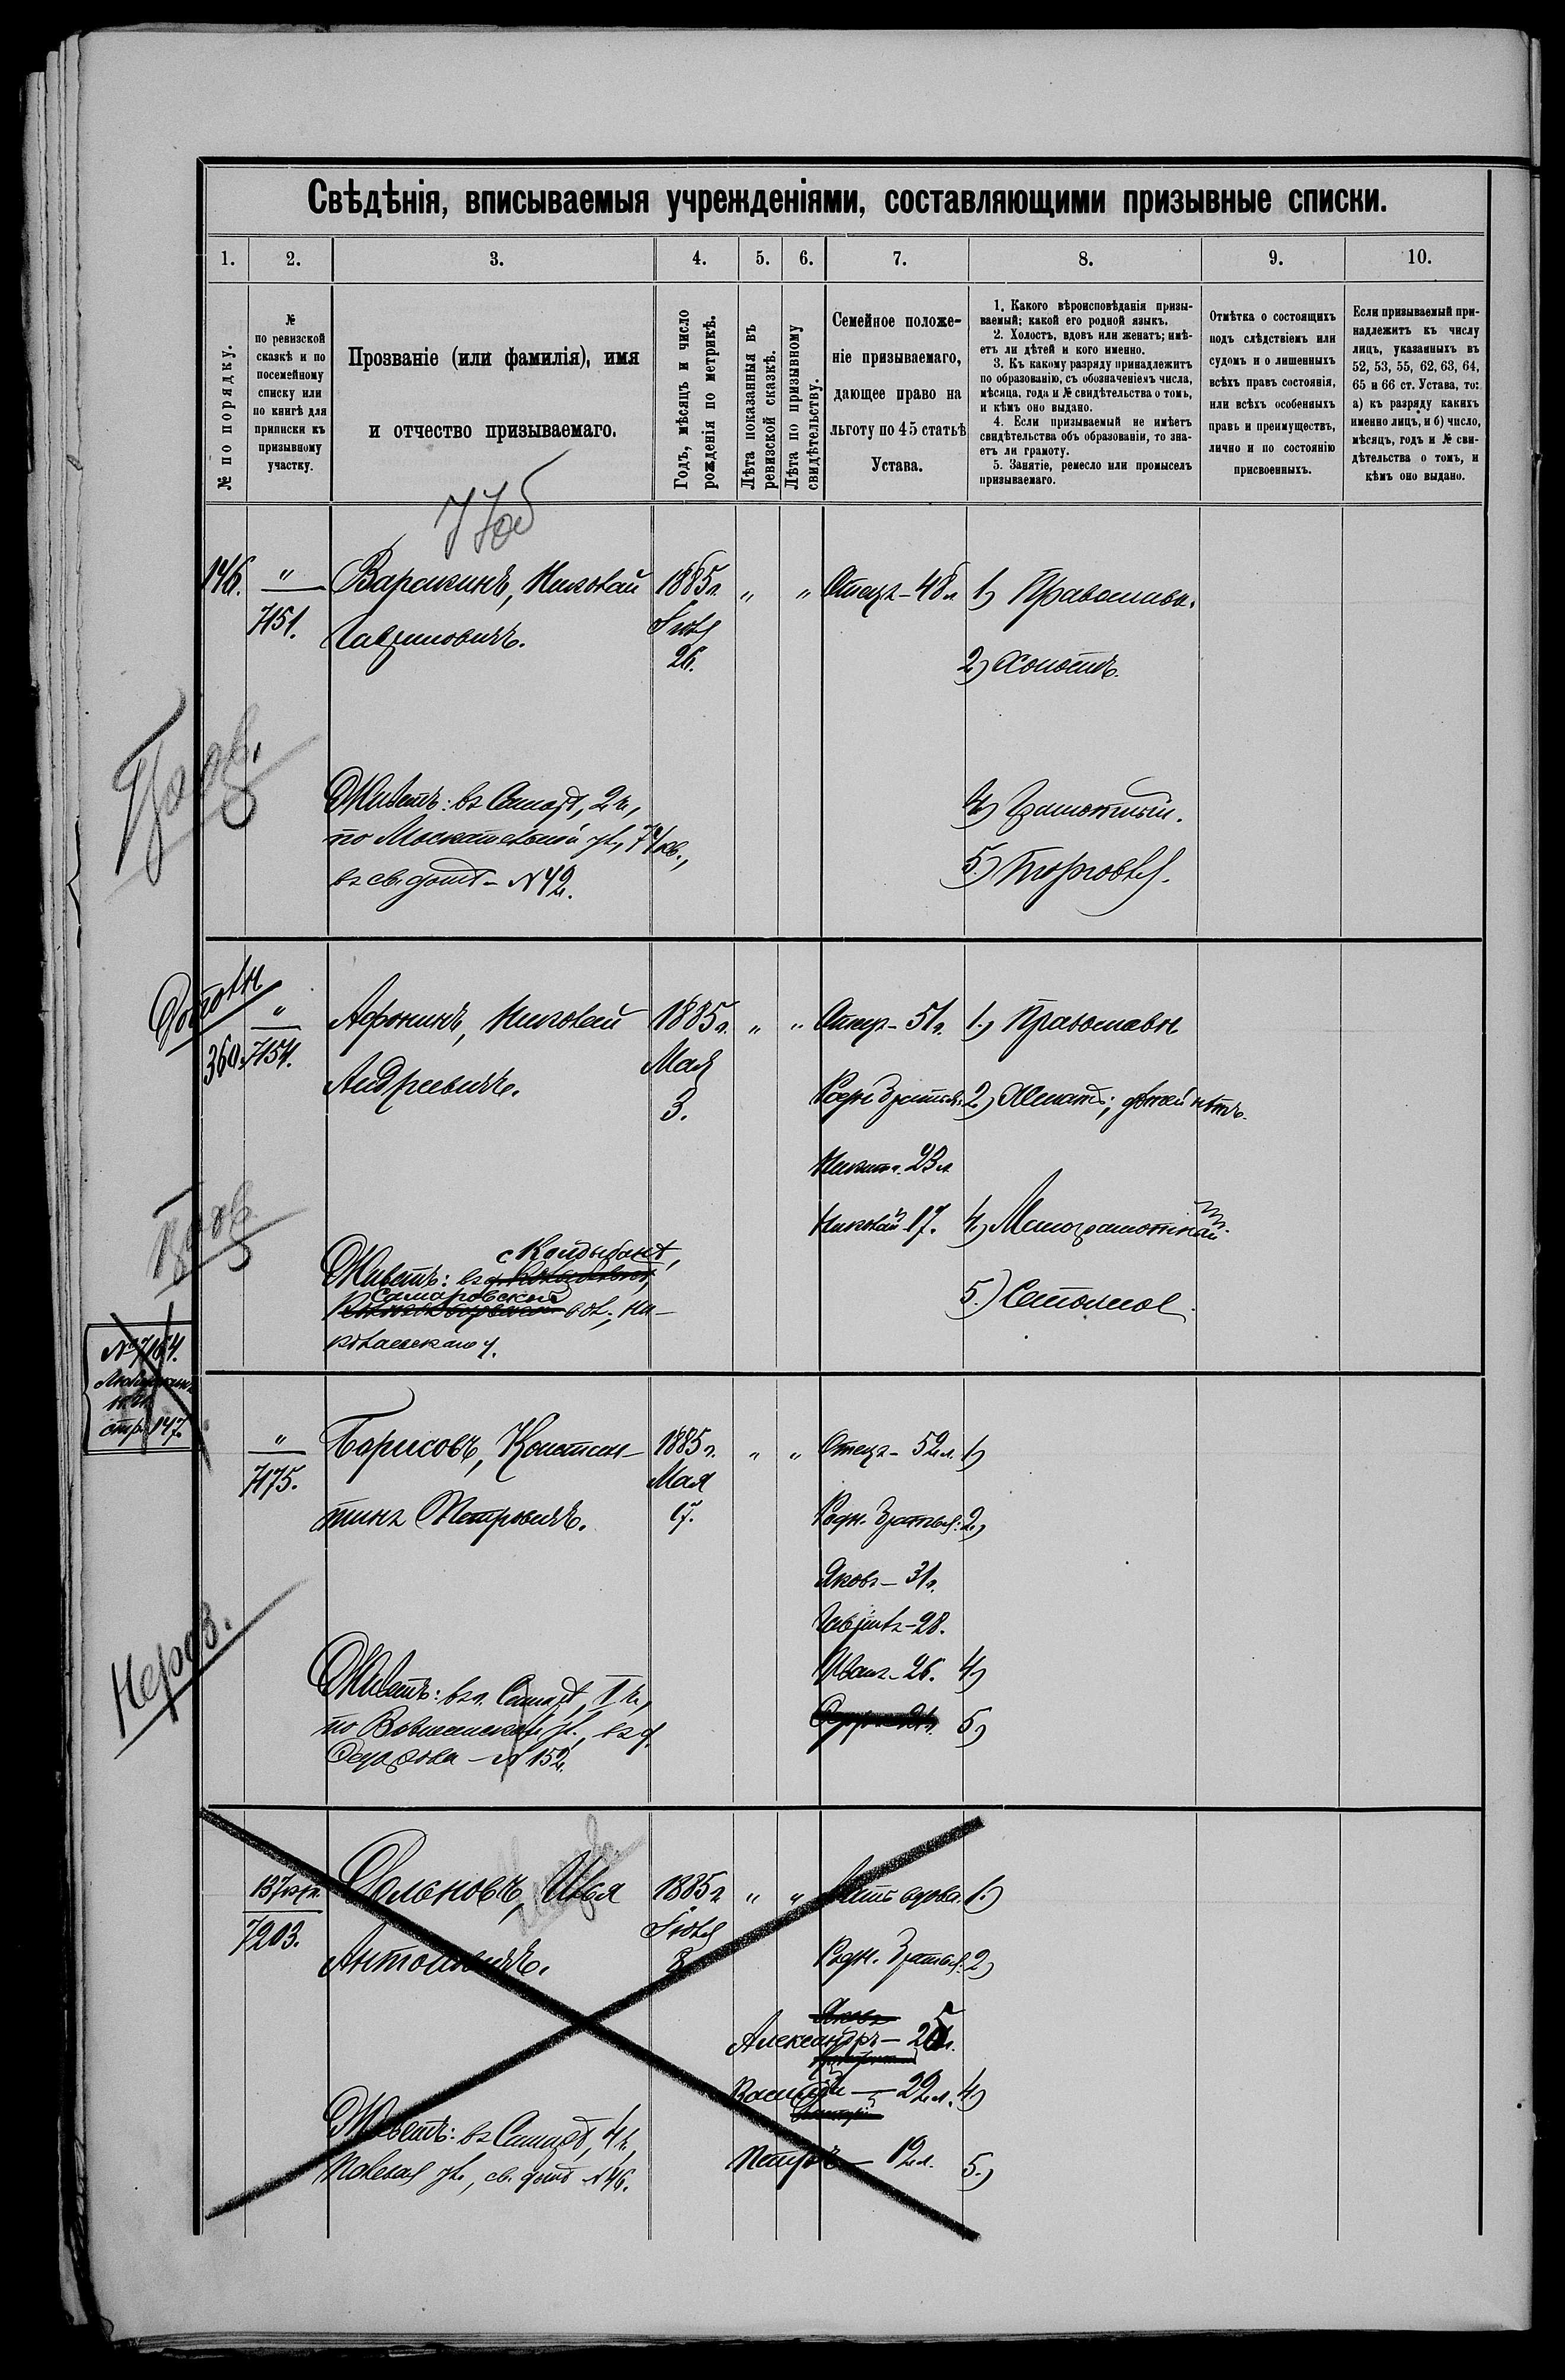 Свѣдѣнія, вписываемыя учрежденіями, составляющими призывные списки.
1. 2. 3. 4. 5. 6. 7. 8. 9. 10.
№ по порядку.
№
по ревизской
сказкѣ и по
посемейному
списку или
по книгѣ для
приписки къ
призывному
участку.
Прозваніе (или фамилія), имя
и отчество призываемаго.
Годъ, мѣсяцъ и число
рожденія по метрикѣ.
Лѣта показанныя въ
ревизской сказкѣ.
Лѣта по призывному
свидѣтельству.
Семейное положе-
ніе призываемаго,
дающее право на
льготу по 45 статьѣ
Устава.
1. Какого вѣроисповѣданія призы-
ваемый; какой его родной языкъ.
2. Холостъ, вдовъ или женатъ; имѣ-
етъ ли дѣтей и кого именно.
3. Къ какому разряду принадлежитъ
по образованію, съ обозначеніемъ числа,
мѣсяца, года и № свидѣтельства о томъ,
и кѣмъ оно выдано.
4. Если призываемый не имѣетъ
свидѣтельства объ образованіи, то зна-
етъ ли грамоту.
5. Занятіе, ремесло или промыселъ
призываемаго.
Отмѣтка о состоящихъ
подъ слѣдствіемъ или
судомъ и о лишенныхъ
всѣхъ правъ состоянія,
или всѣхъ особенныхъ
правъ и преимуществъ,
лично и по состоянію
присвоенныхъ.
Если призываемый при-
надлежитъ къ числу
лицъ, указанныхъ въ
52, 53, 55, 62, 63, 64,
65 и 66 ст. Устава, то:
а) къ разряду какихъ
именно лицъ, и б) число,
мѣсяцъ, годъ и № сви-
дѣтельства о томъ, и
кѣмъ оно выдано.
146. " Николай 1885г. " " Отецъ - 48 л. 1) Православн.
7151. Гавриловичъ. Іюля
26. 2) Холостъ.
Живетъ: въ Самарѣ, 2 ч., 4) Грамотный.
по Москательной ул., 74 кв., 5) Торговля.
въ св. домѣ - № 42.
" Афонинъ, Николай 1885г. " " Отецъ - 51 г. 1) Православн.
360. 7154. Мая
Андреевичъ. 3. Родн. братья: 2) Женатъ; дѣтей нѣтъ.
Никита - 23 л.
Николай - 17. 4) Малограмотный.
с. Колдыбанѣ,
Живетъ: въ
Самаровской 5.) Столяръ.
вол., Ни-
колаевскаго у.
№ 7154.
стр. 147.
" Борисовъ, Констан- 1885г. " " Отецъ - 52 л. 1)
7175. Мая
тинъ Петровичъ. 17. Родн. братья: 2)
Яковъ - 31 г.
Гавріилъ - 28.
Живетъ: въ г. Самарѣ, 1 ч., Иванъ - 26. 4)
по ул., въ д. 5)
№ 152.
Нераз.
Илья 1885г. " " Мать вдова. 1)
7203. Іюля
Антоновичъ. 8. Родн. братья: 2)
Александръ - 25 л.
Василій - 22 л. 4)
Живетъ: въ Самарѣ, 4 ч.,
Полевая ул., св. домѣ № 46. Петръ - 12 л. 5.)